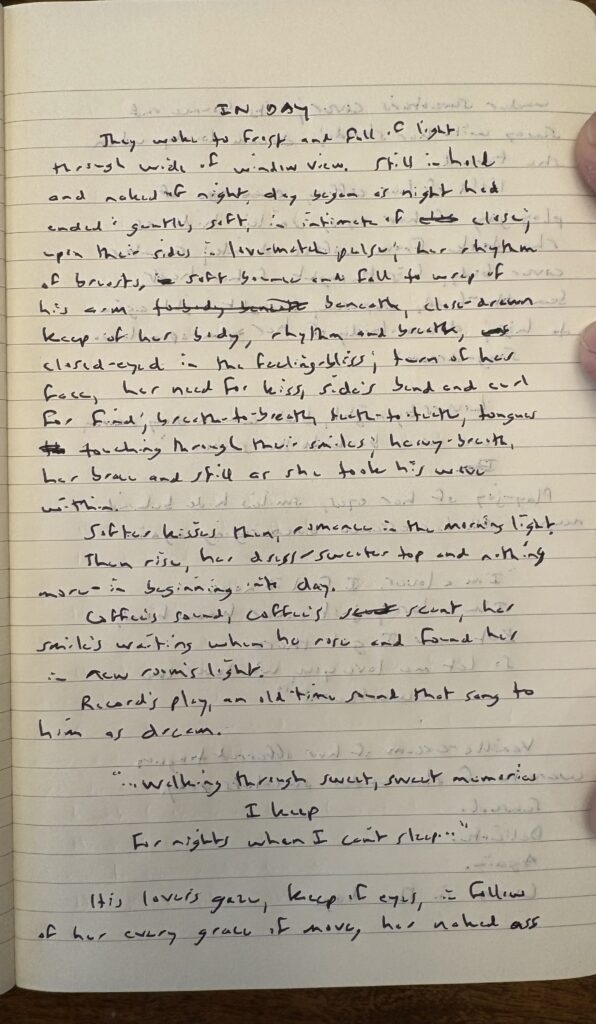 IN DAY
They woke to frost and fall of light
through wide of window view. Still in hold
and naked of night, day began as night had
ended: gently, soft, in intimate of close;
upon their sides in love-match pulse; her rhythm
of breasts, soft bounce and fall to wrap of
his arm beneath, close-drawn
keep of her body, rhythm and breath,
closed-eyed in the feeling-bliss; turn of her
face, her need for kiss, side's bend and curl
for find; breath-to-breath, teeth-to-teeth, tongues
touching through their smiles; heavy-breath,
her brace and still as she took his
within.
Softer kisses then, romance in the morning light.
Then rise, her dress/sweater top and nothing
more in beginning into day.
Coffee's sound, coffee's scent, her
smile's waiting when he rose and found her
in new room's light.
Record's play, an old-time sound that sang to
him as dream.
"...Walking through sweet, sweet memories
I keep
For nights when I can't sleep..."
His lover's gaze, keep of eyes, in follow
of her every grace of move, her naked ass